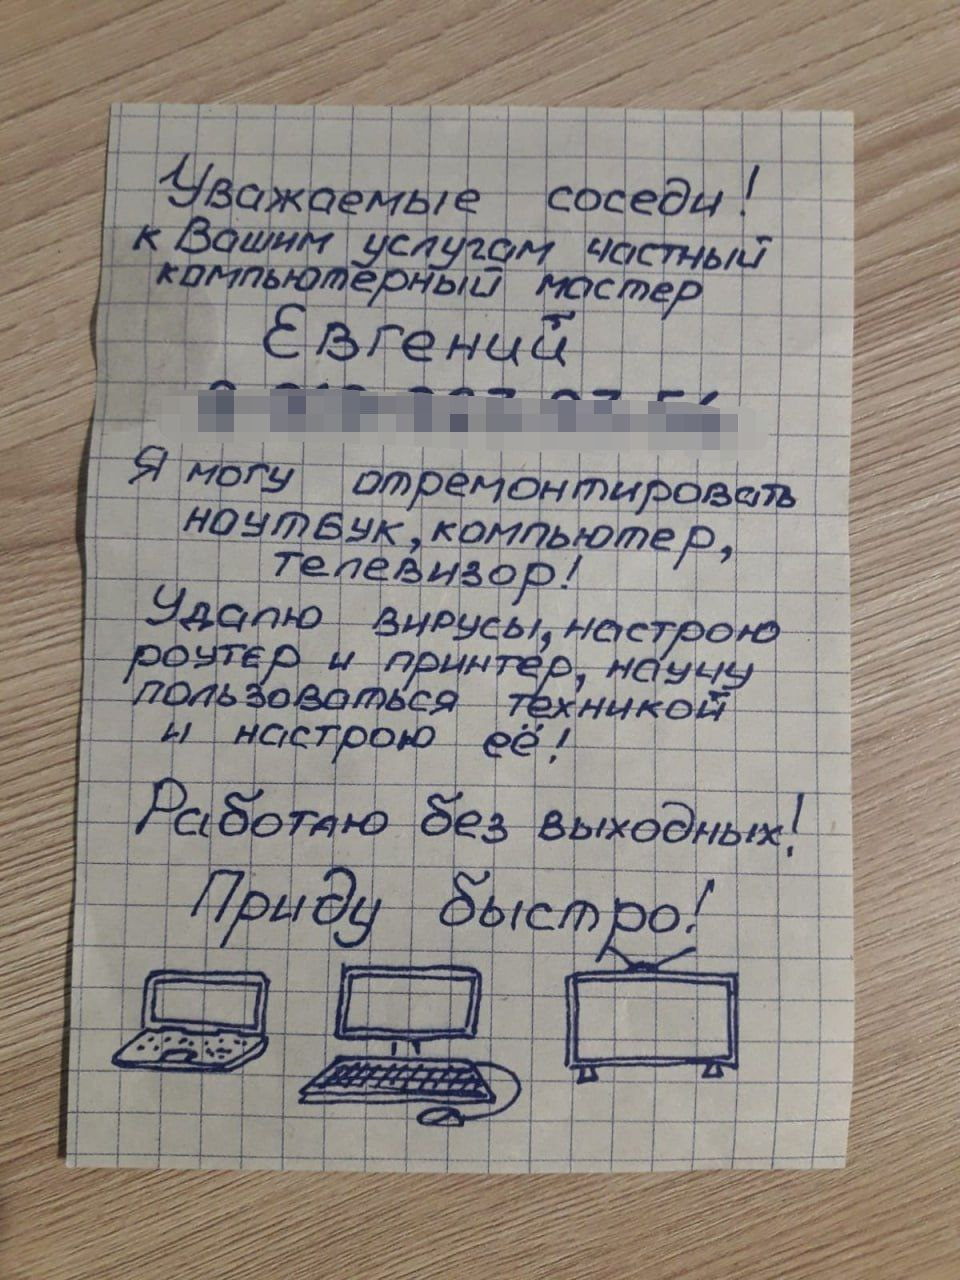 Уважаемые соседи!
к Вашим услугам частный
компьютерный мастер
Евгений
Я могу отремонтировать
ноутбук, компьютер,
телевизор!
Удалю вирусы, настрою
роутер и принтер, научу
пользоваться техникой
и настрою её!
Работаю без выходных!
Приду быстро!